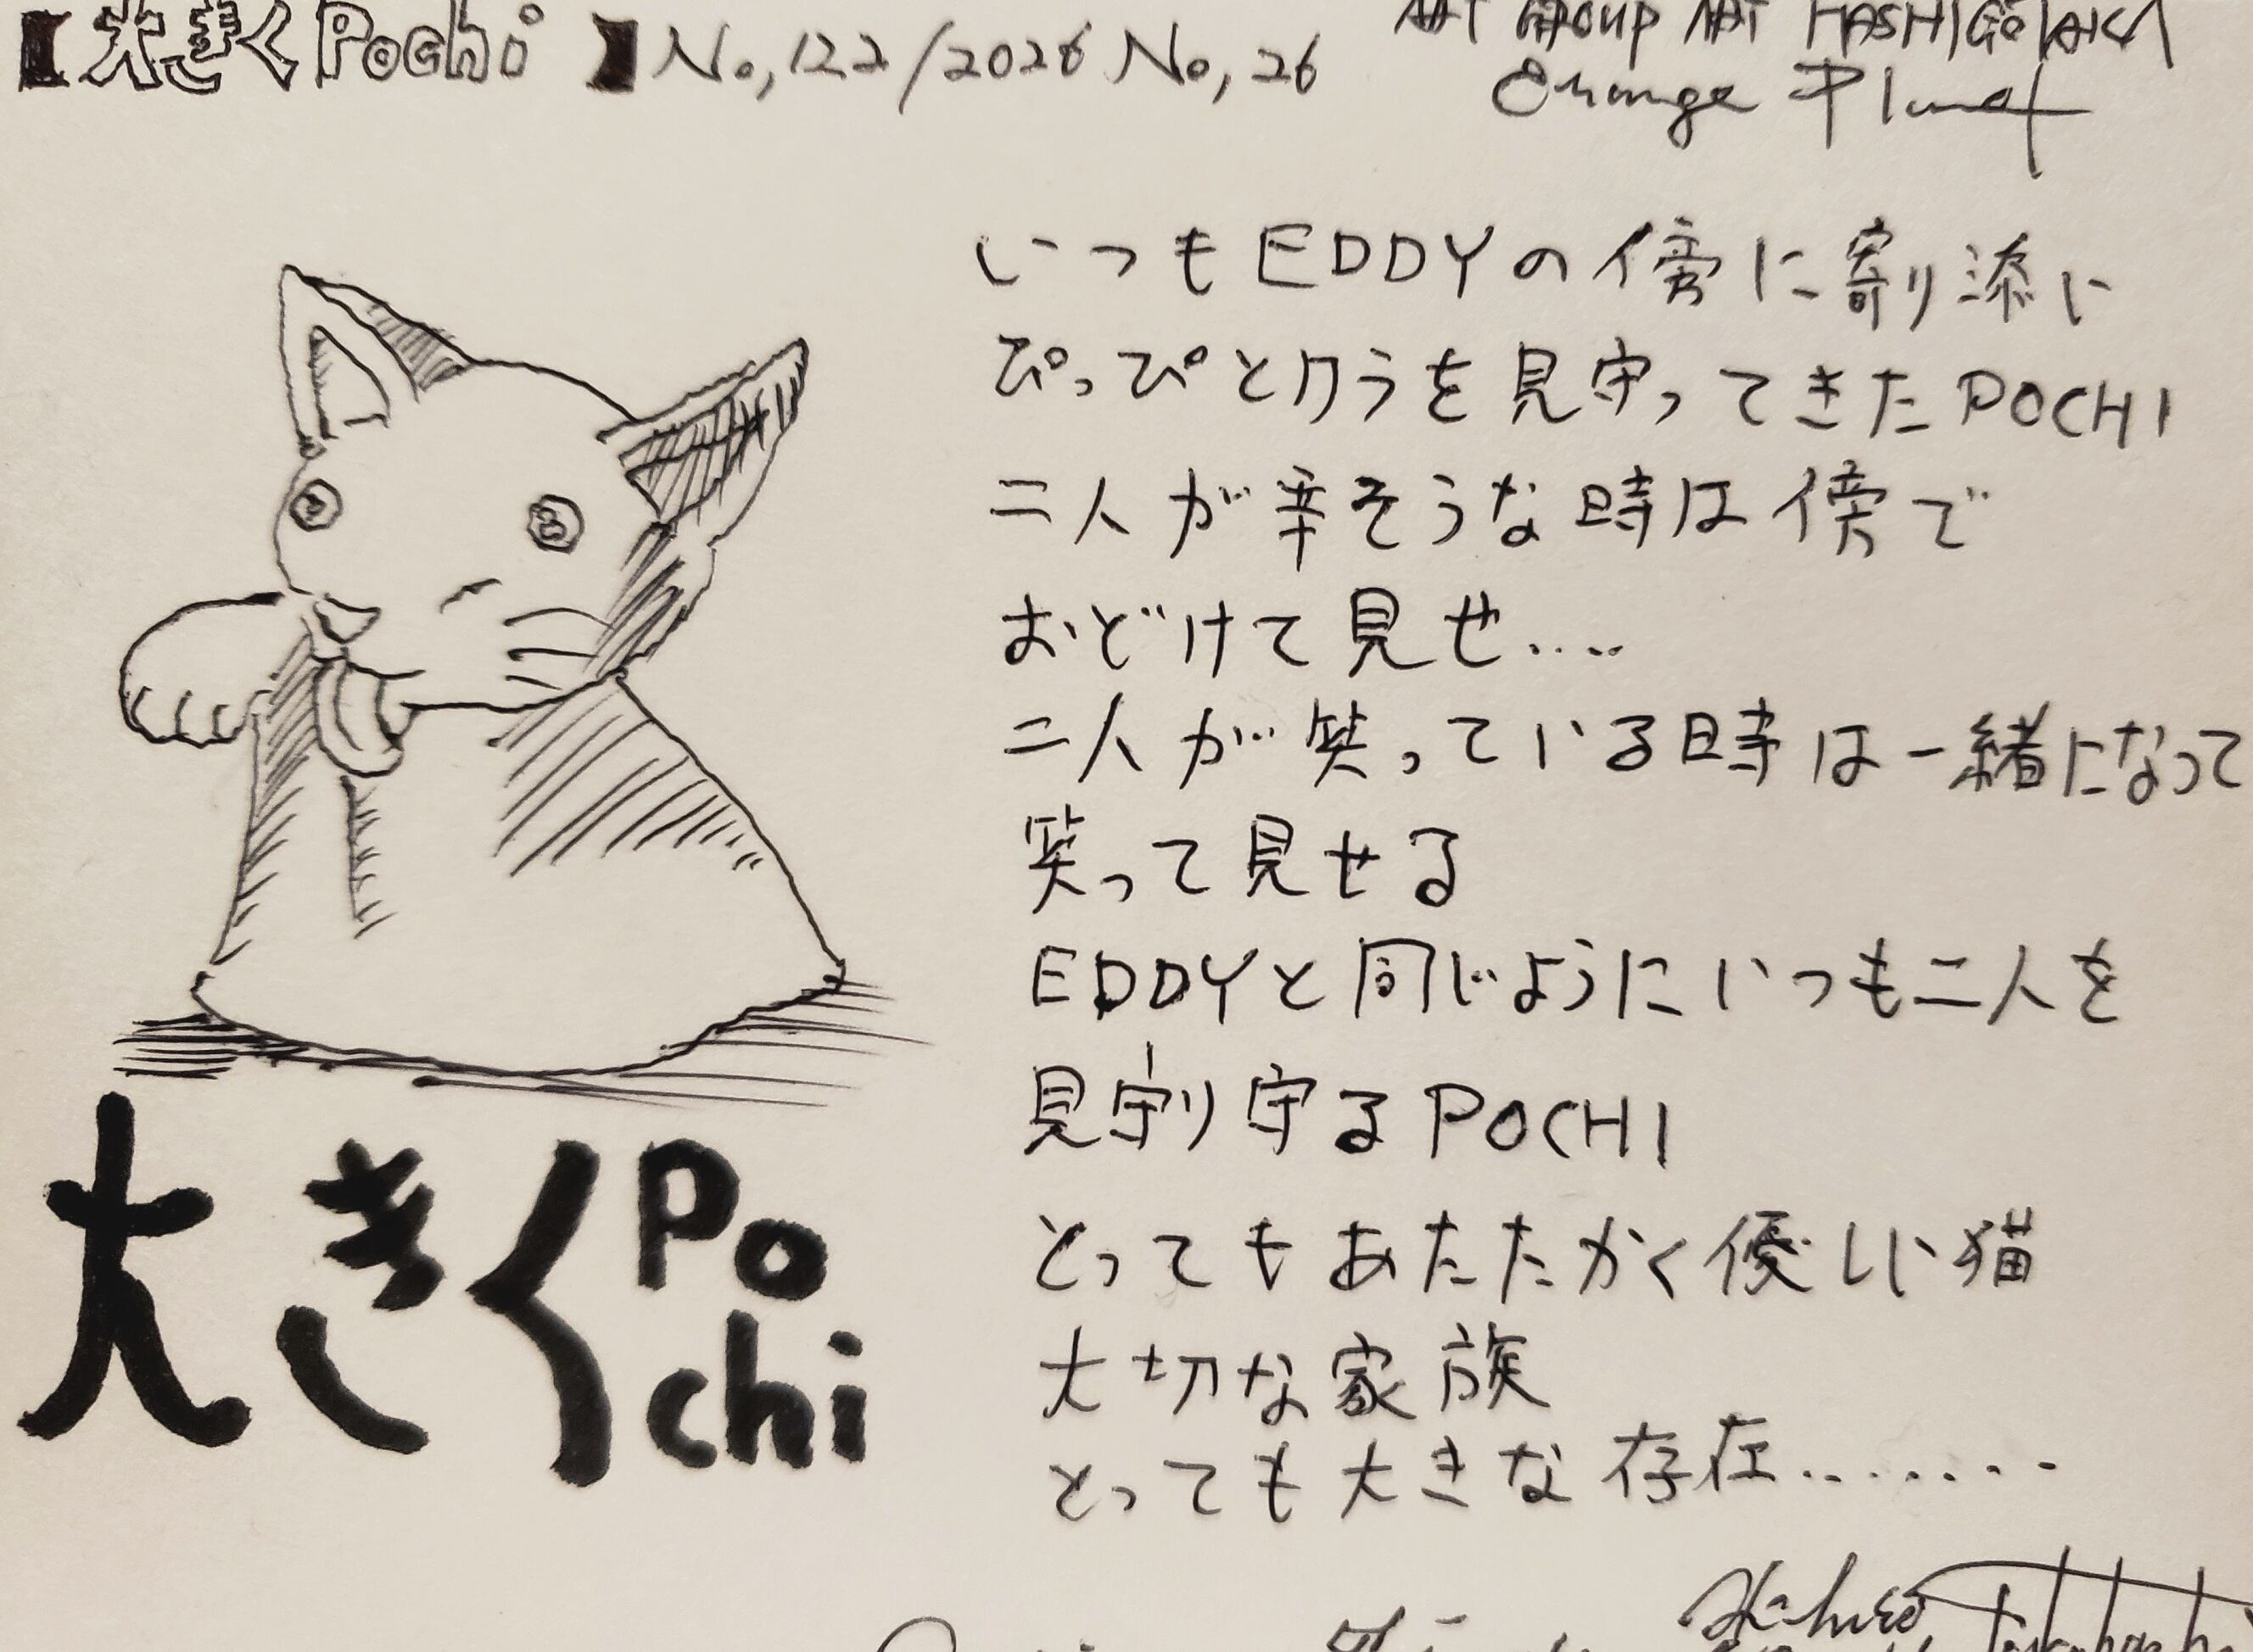 【大きくPochi】No,122/2026 No,26
ART GROUP ART HASHIGOTAKA
Orange Planet
いつもEDDYの傍に寄り添い
ぴっぴとクうを見守ってきたPOCHI
二人が辛そうな時は傍で
おどけて見せ....
二人が笑っている時は一緒になって
笑って見せる
EDDYと同じようにいつも二人を
見守り守るPOCHI
とってもあたたかく優しい猫
大切な家族
とっても大きな存在........
大きくPo
chi